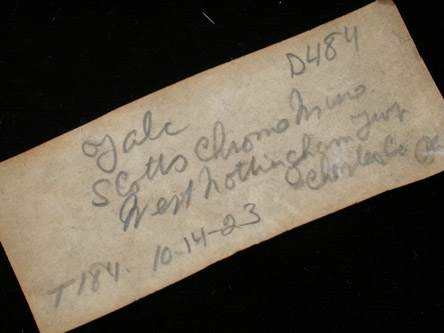 D484
Talc
Scotts Chrome Mine
West Nottingham Twp
Chester Co Pa
T184. 10-14-23